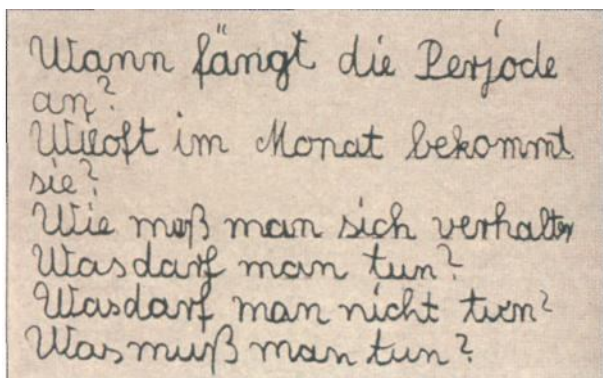 Wann fängt die Perjode
an?
Wieoft im Monat bekommt
sie?
Wie muß man sich verhalten
Wasdarf man tun?
Wasdarf man nicht tun?
Wasmuß man tun?